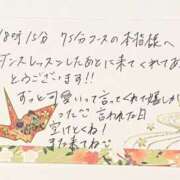 18時15分 75分コースの本指様へ
ダンスレッスンしたあとに来てくれてあ
とうございます!!
ずっと可愛いって言ってくれて嬉しか
った
言われた日
空けとくね!
また来てね♡